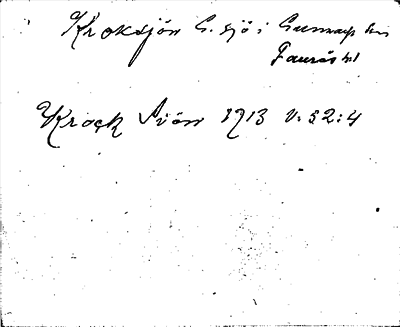 Kroksjön G. sjö i Gunnarp sn
Faurås hd
Krock Siön 1713 V: 52: 4